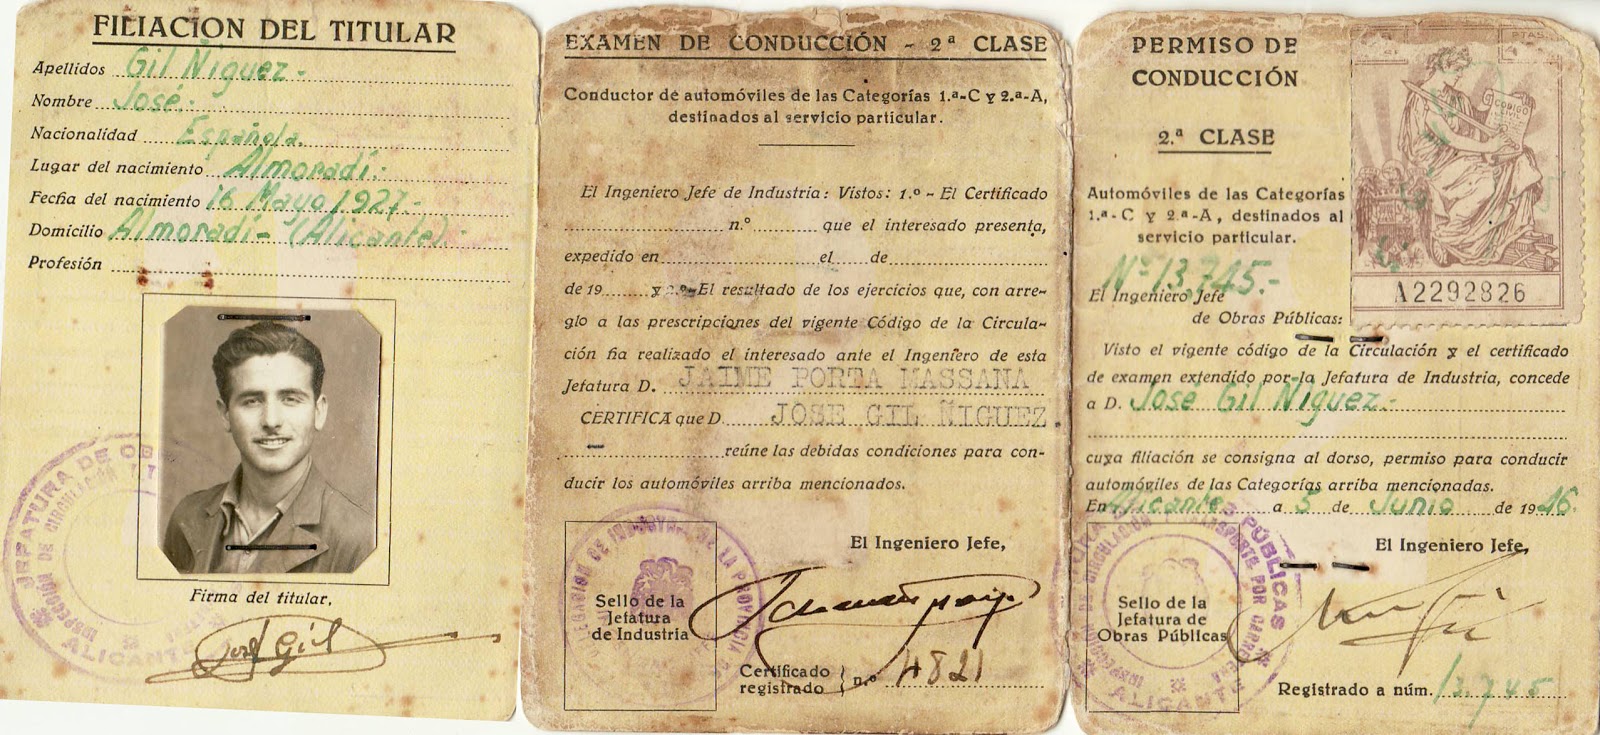 FILIACION DEL TITULAR
Apellidos Gil Ñiguez.-
Nombre José.-
Nacionalidad Española.
Lugar del nacimiento Almoradí.-
Fecha del nacimiento 16 Mayo 1927.-
Domicilio Almoradí- (Alicante).-
Profesión
JEFATURA DE OB
INSPECCIÓN DE CIRCULACIÓN
ALICANTE
Firma del titular,
José Gil
EXAMEN DE CONDUCCIÓN - 2ª CLASE
Conductor de automóviles de las Categorías 1.ª-C y 2.ª-A,
destinados al servicio particular.
El Ingeniero Jefe de Industria: Vistos: 1.º - El Certificado
n.º que el interesado presenta,
expedido en el de
de 19 y 2.º-El resultado de los ejercicios que, con arre-
glo a las prescripciones del vigente Código de la Circula-
ción ha realizado el interesado ante el Ingeniero de esta
Jefatura D. JAIME PORTA MASSANA
CERTIFICA que D JOSE GIL ÑIGUEZ.
reúne las debidas condiciones para con-
ducir los automóviles arriba mencionados.
El Ingeniero Jefe,
Sello de la
Jefatura
de Industria
Certificado
registrado } n.º 4821
PERMISO DE
CONDUCCIÓN
2.ª CLASE
Automóviles de las Categorías
1.ª-C y 2.ª-A, destinados al
servicio particular.
Nº 13,745.-
El Ingeniero Jefe
de Obras Públicas:
PTAS.
CODIGO
CIVIL
A2292826
Visto el vigente código de la Circulación y el certificado
de examen extendido por la Jefatura de Industria, concede
a D. José Gil Ñiguez.-
cuya filiación se consigna al dorso, permiso para conducir
automóviles de las Categorías arriba mencionadas.
En Alicante a 3 de Junio de 1946.
El Ingeniero Jefe,
Sello de la
Jefatura de
Obras Públicas
S PÚBLICAS
CIRCULACIÓN Y TRANSPORTE POR CARRETERA
ALICANTE
Registrado a núm. 13.745